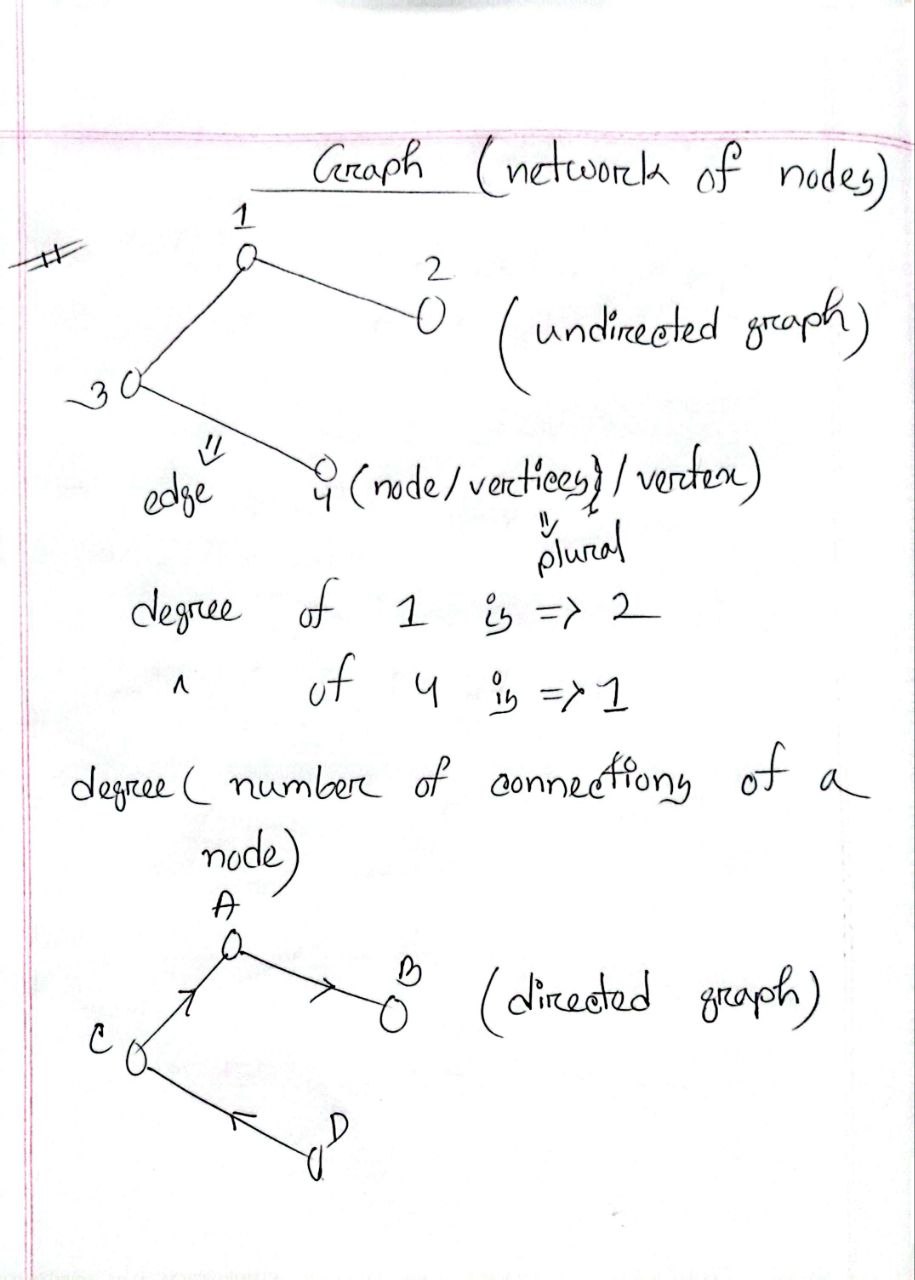 Graph (network of nodes)
1
2
(undirected graph)
3
edge
4 (node/vertices}/vertex)
plural
degree of 1 is => 2
" of 4 is => 1
degree ( number of connections of a
node)
A
B
(directed graph)
C
D